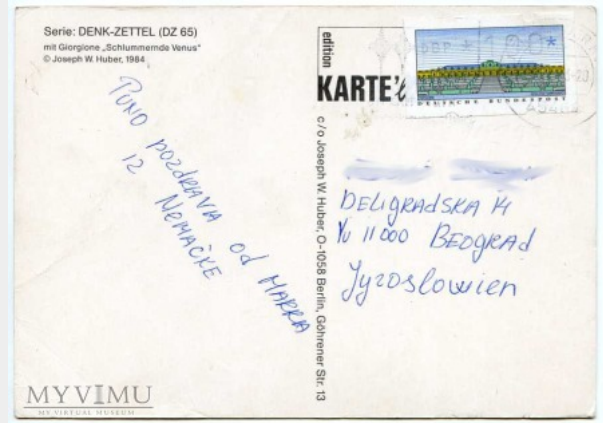 Serie: DENK-ZETTEL (DZ 65)
mit Giorgione „Schlummernde Venus"
© Joseph W. Huber, 1984
PUNO POZDRAVA OD MARRA
IZ NEMAČKE
edition
KARTE'l
c/o Joseph W. Huber, O-1058 Berlin, Göhrener Str. 13
DEUTSCHE BUNDESPOST
DELIGRADSKA 14
YU 11000 BEOGRAD
Jyroslowien
MYVIMU
MY VIRTUAL MUSEUM